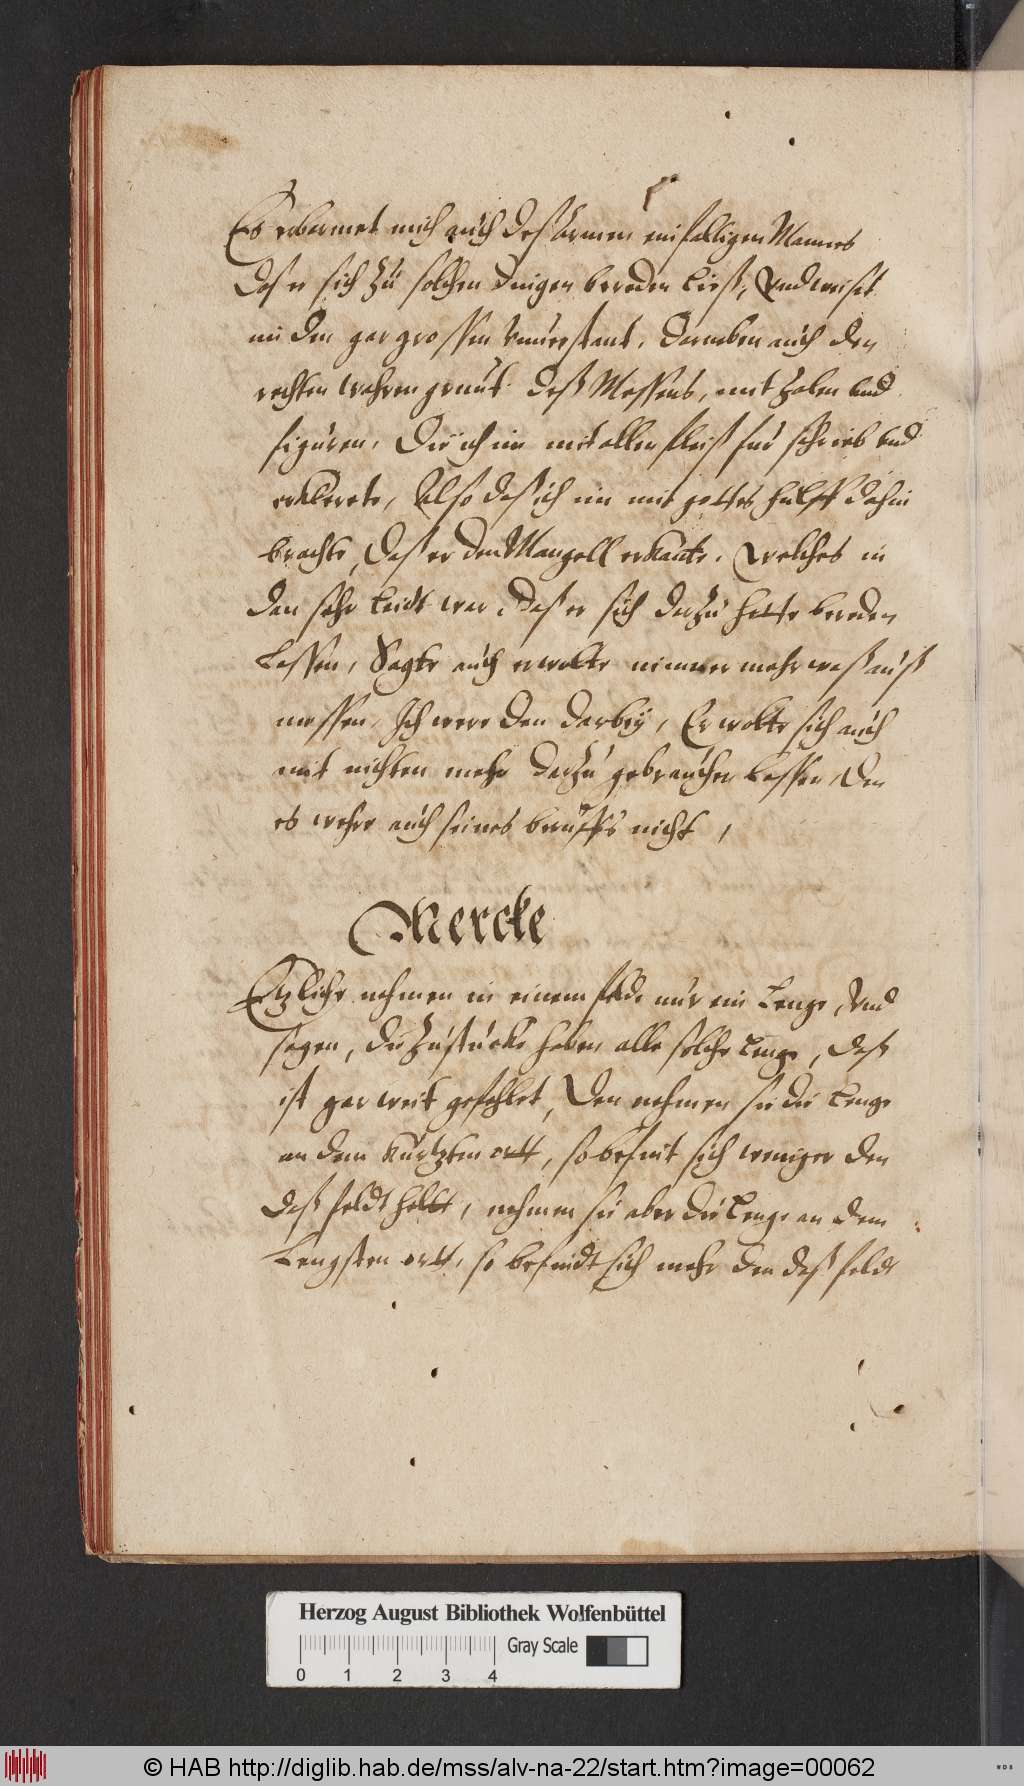 Es erbarmet mich auch deß armen einfalligen Mannes
das er sich zu solchen dingen bereden ließ, Vnd weiset
im den gar grossen vnuerstant, darneben auch den
rechten wahren grunt deß Messens, mit zalen vnd
figuren, Die ich im mit allen fleiß fur schrieb vnd
erklerete, Also das ich im mit gottes hulff dahin
brachte, daß er den Mangell erkante, welches in
dan sehr leidt war, daß er sich darzu hette bereden
lassen, Sagte auch er wolte nimmer mehr waß auß
messen, Ich were den darbey, Er wolte sich auch
mit nichten mehr darzu gebrauchen lassen, den
es wehre auch seines beruffs nicht,
Mercke
Etzliche nehmen in einem felde nur ein lenge, Vnd
sagen, die zustucke haben alle solche lenge, daß
ist gar weit gefehlet, Den nehmen sie die lenge
an dem kurtzten ortt, so befint sich weniger den
daß feldt helt, nehmen sie aber die lenge an dem
lengsten ortt, so befindt sich mehr den daß feldt
Herzog August Bibliothek Wolfenbüttel
Gray Scale
0 1 2 3 4
© HAB http://diglib.hab.de/mss/alv-na-22/start.htm?image=00062